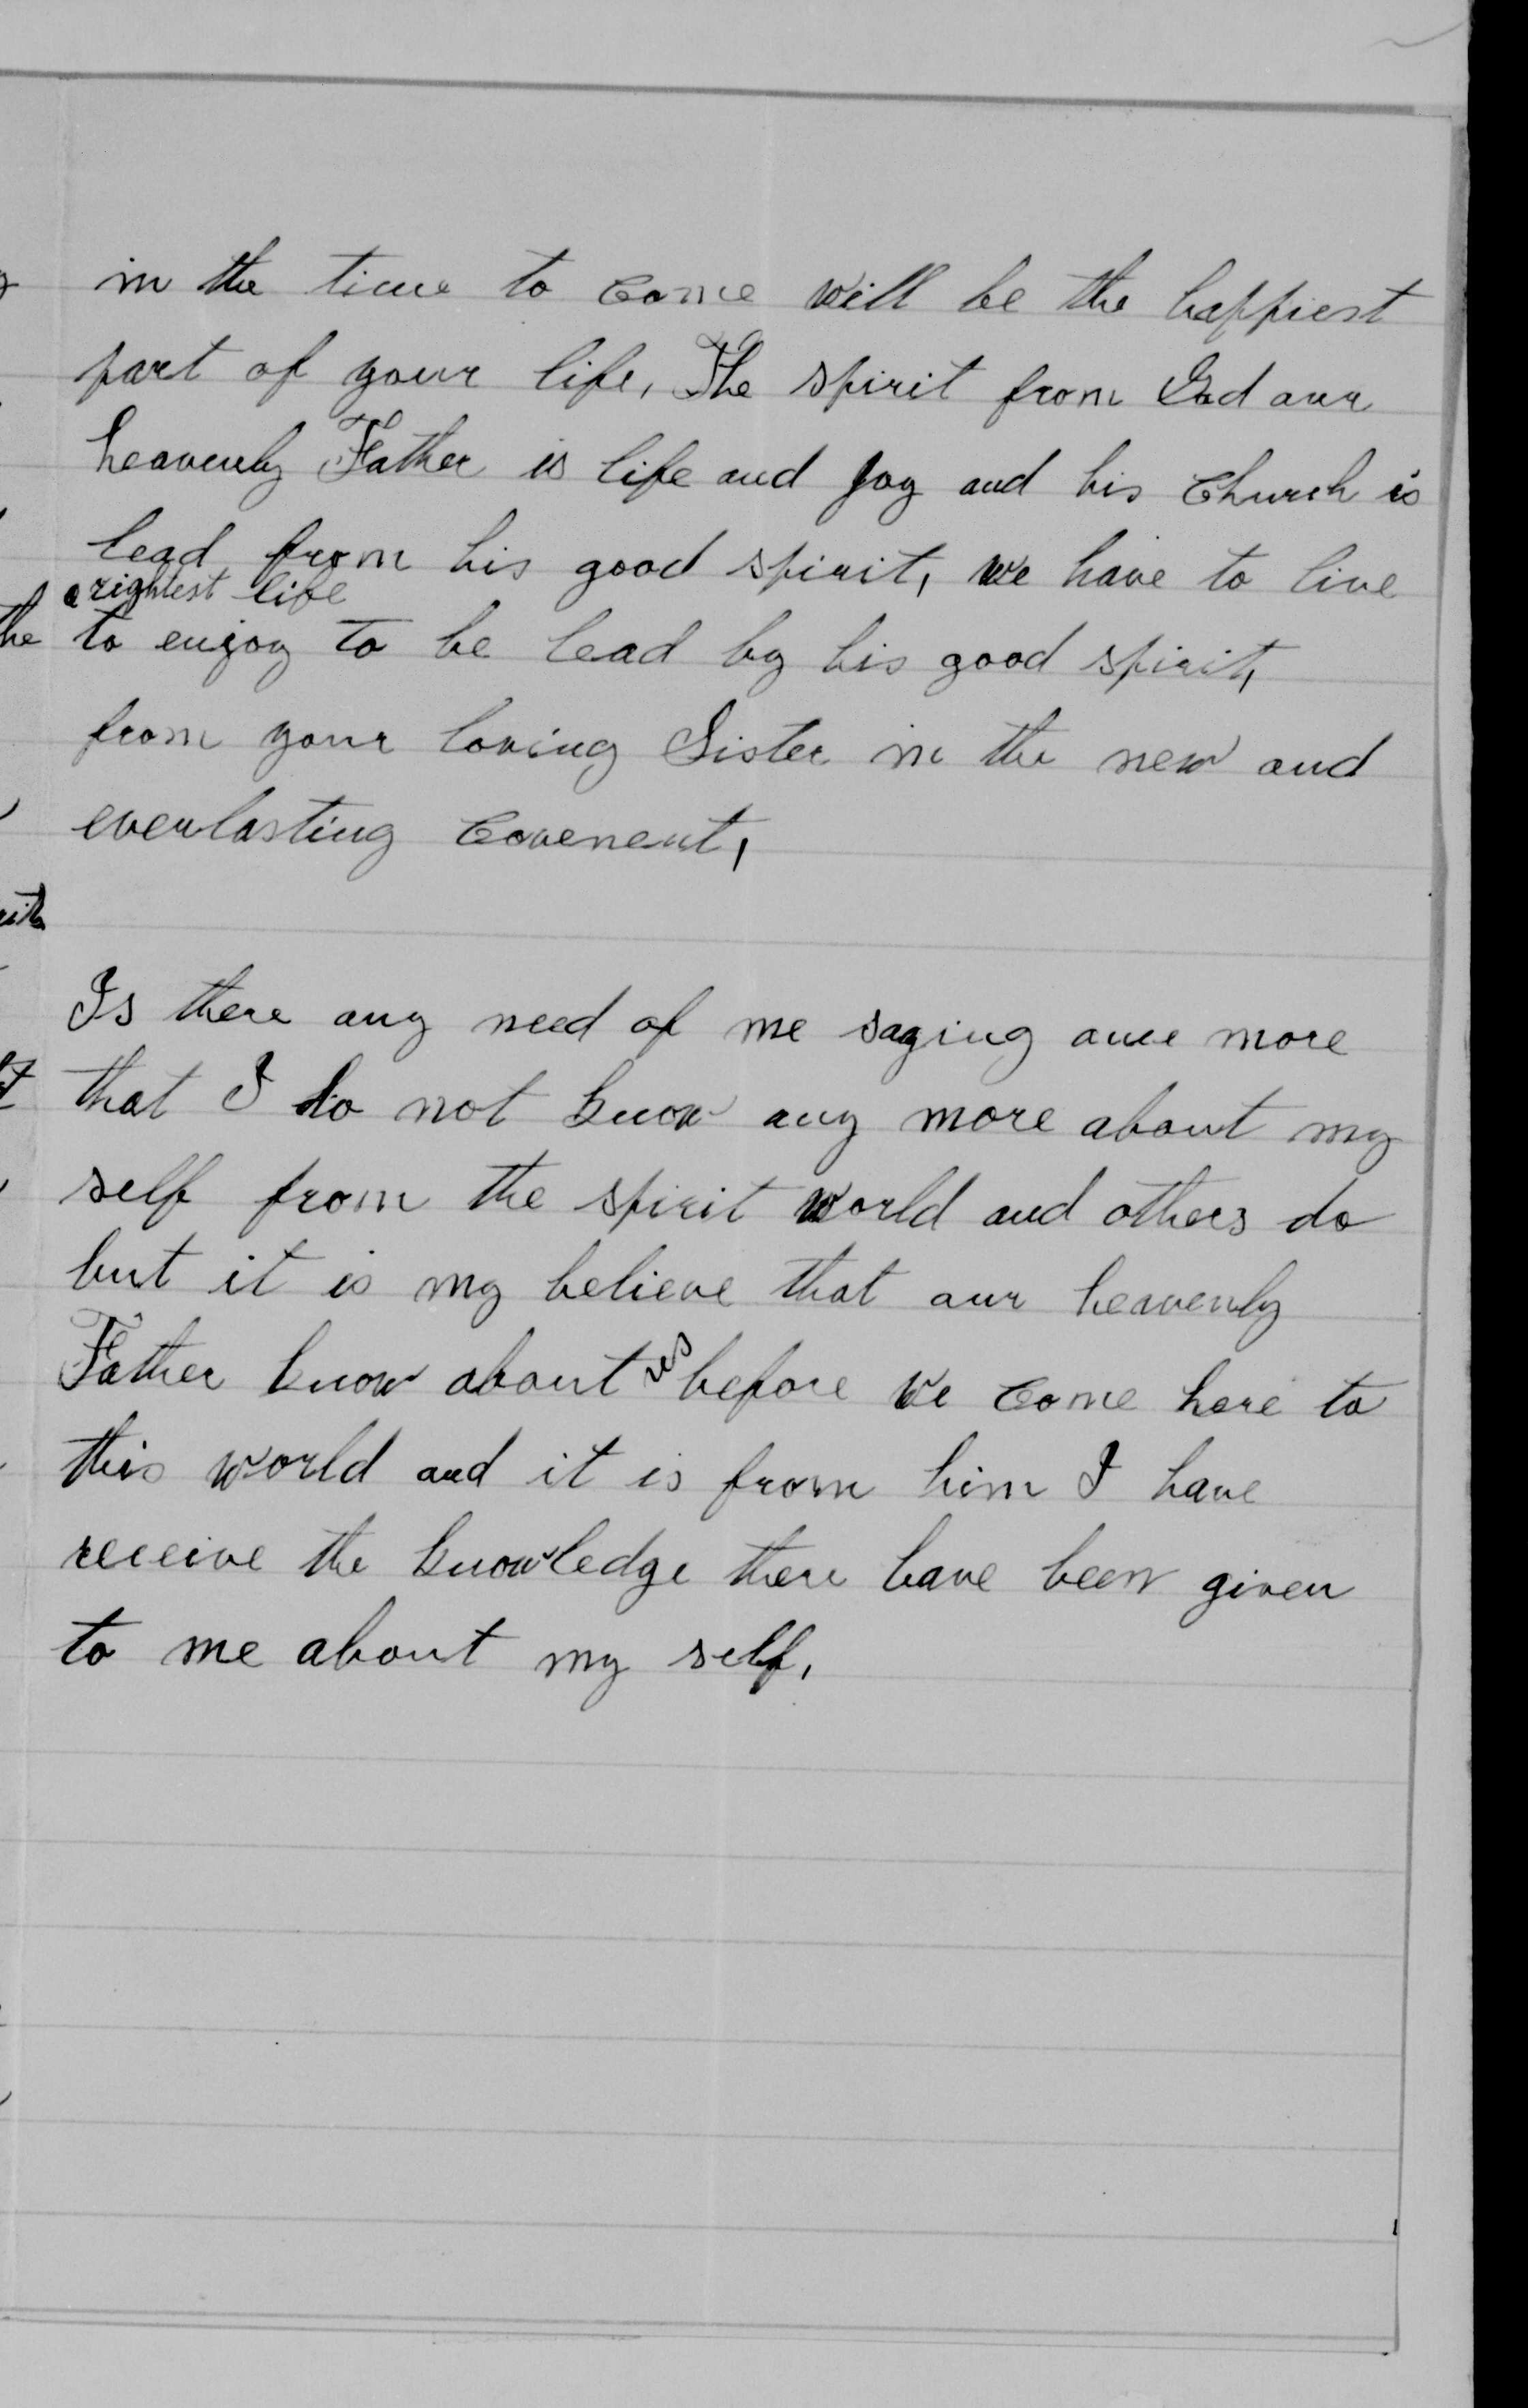 in the time to come will be the happiest
part of your life, The spirit from God our
heavenly Father is life and Joy and his Church is
lead from his good spirit, we have to live
a rightest life
to enjoy to be lead by his good spirit,
from your loving Sister in the new and
everlasting Covenent,
Is there any need of me saying once more
that I do not know any more about my
self from the spirit world and others do
but it is my believe that our heavenly
Father know about us before we come here to
this world and it is from him I have
receive the knowledge there have been given
to me about my self,